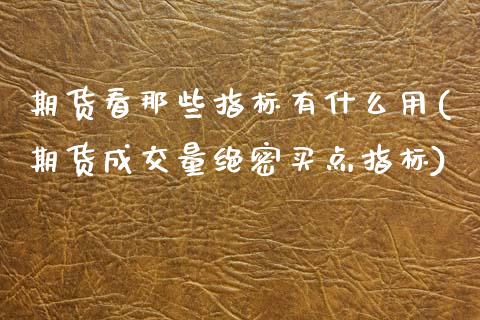 期货看那些指标有什么用(
期货成交量绝密买点指标)